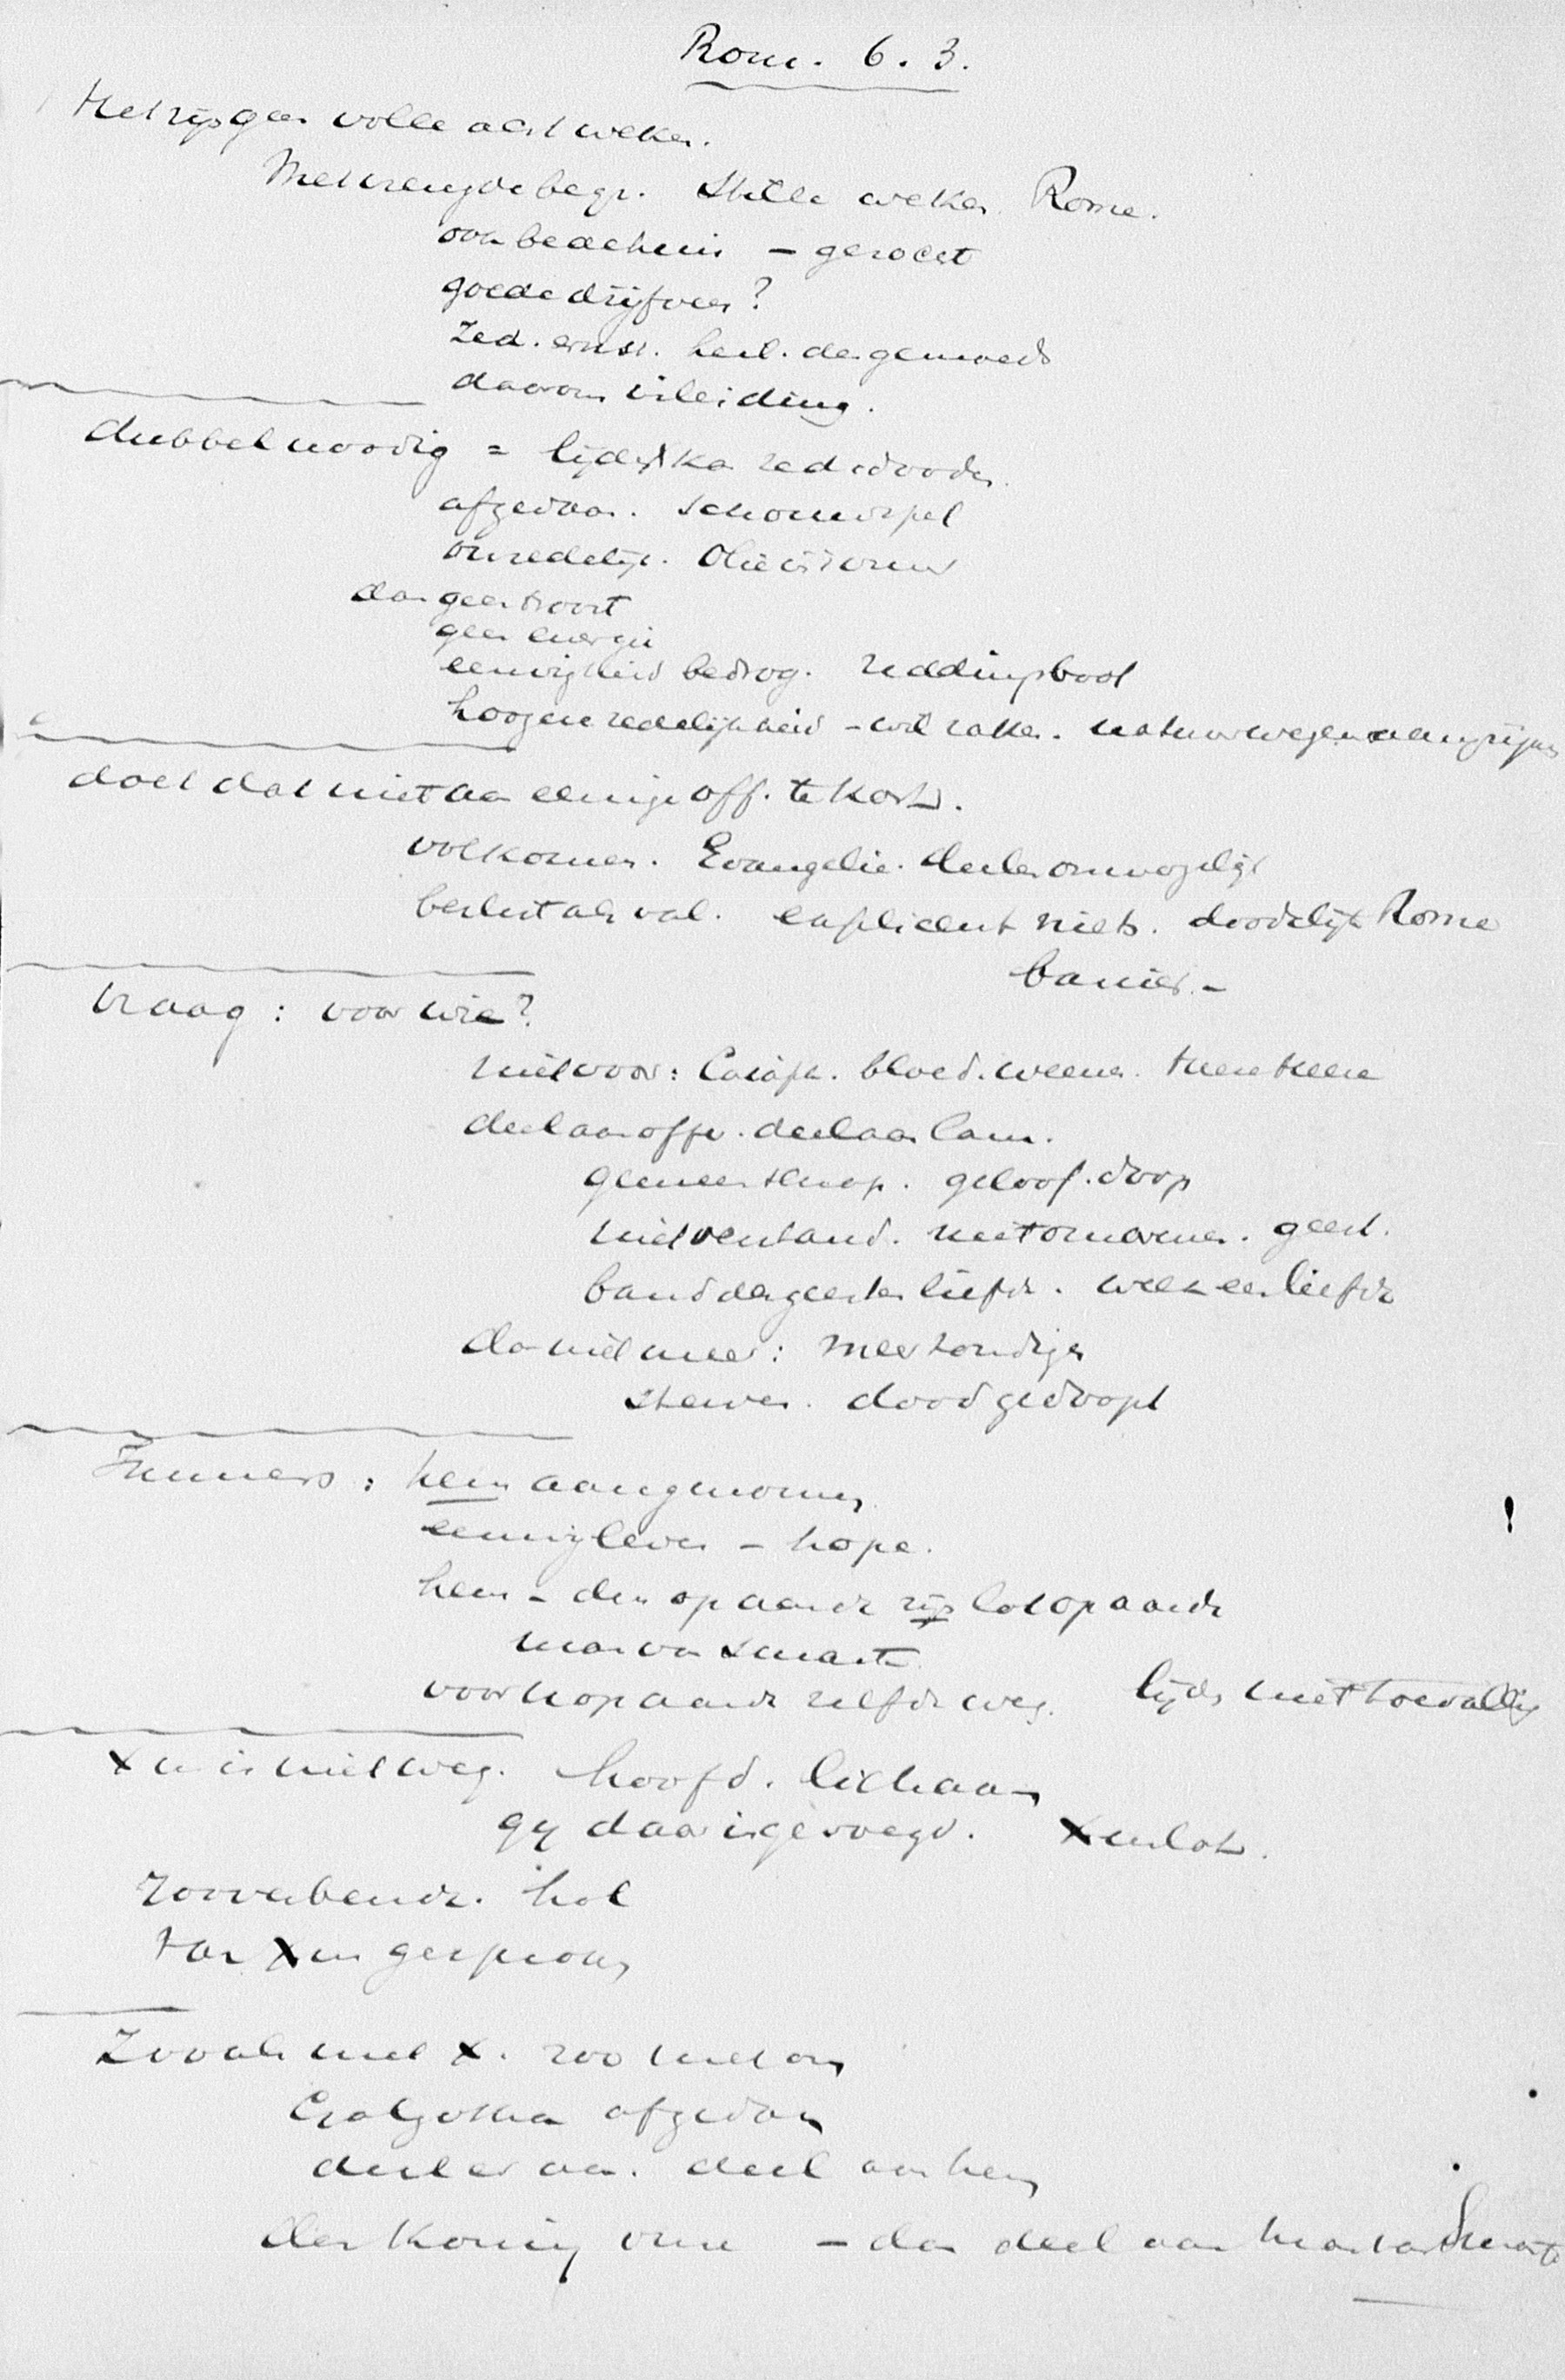 Rom. 6. 3.
Het zijn geen volle acht weken.
Met vreugde begr. Stille weken Rome.
oorbeachuis – geroest
goede drijfveer?
Zed. ernst. heil. des gemoeds
daarom inleiding.
dubbel noodig = lijdst ka
afgedaan. schouwspel
onredelijk.
dan geen troost
geen energie
eeuwigheid bedrog. reddingsboot
hoogere redelijkheid – wil raken. natuur wegen aangrijpen
doet dat niet aan eenige off. te kort.
volkomen. Evangelie. deelen onmogelijk
besluit als val. expliceert niets. doodelijk Rome
banier. –
vraag: voor wie?
niet voor: Caiaph. bloed. weenen.
deel aan offer. deel aan Lam.
gemeenschap. geloof. doop
niet verstand. niet omarmen. geest.
band des geestes liefde. welk een liefde
dan niet meer: meer zondigen
sterven. dood gedoopt
Immers: hem aangenomen
eeuwig leven – hope.
hem – den op aarde zijn lot op aarde
man van smarte
voor u op aarde zelfde weg. lijden niet toevallig
X us is niet weg. hoofd. lichaam
gij daar ingevoegd. X us lot.
rooverbende. hol
van X us gesproken
Zooals met X. zoo met ons
Golgotha afgedaan
deel er aan. deel aan hem
den Koning onze – dan deel aan man van Smarte